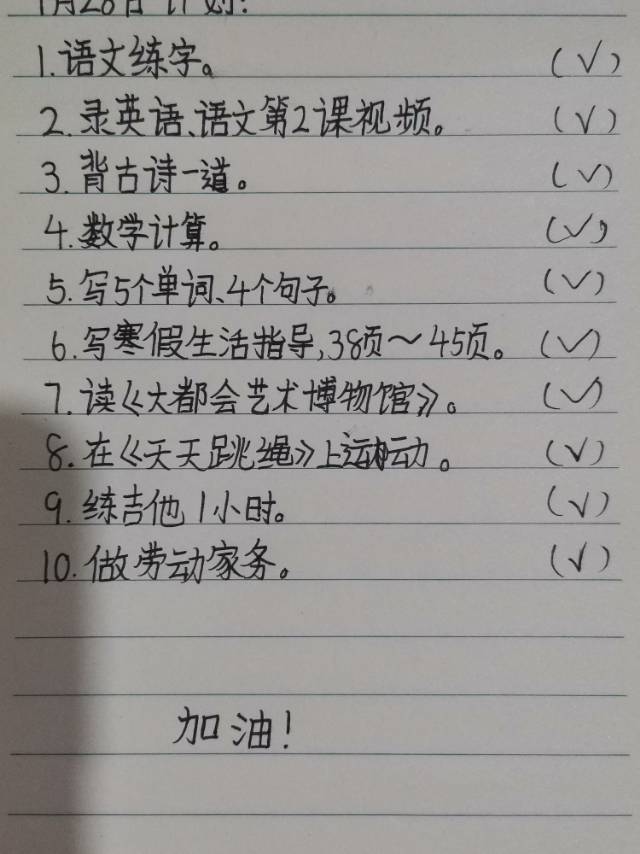 1月28日计划:
1.语文练字。 (√)
2.录英语、语文第2课视频。 (√)
3.背古诗一道。 (√)
4.数学计算。 (√)
5.写5个单词、4个句子。 (√)
6.写寒假生活指导,38页～45页。 (√)
7.读《大都会艺术博物馆》。 (√)
8.在《天天跳绳》上运动。 (√)
9.练吉他1小时。 (√)
10.做劳动家务。 (√)
加油!